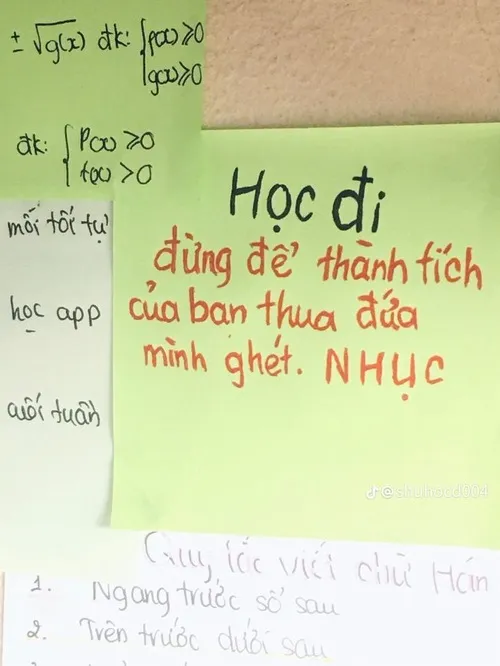 ± √g(x) đk: { f(x) ≥ 0
g(x) ≥ 0
đk: { P(x) ≥ 0
f(x) > 0
mỗi tối tự
học app
cuối tuần
Học đi
đừng để thành tích
của bạn thua đứa
mình ghét. NHỤC
@shuhocd004
Quy tắc viết chữ Hán
1. Ngang trước sổ sau
2. Trên trước dưới sau